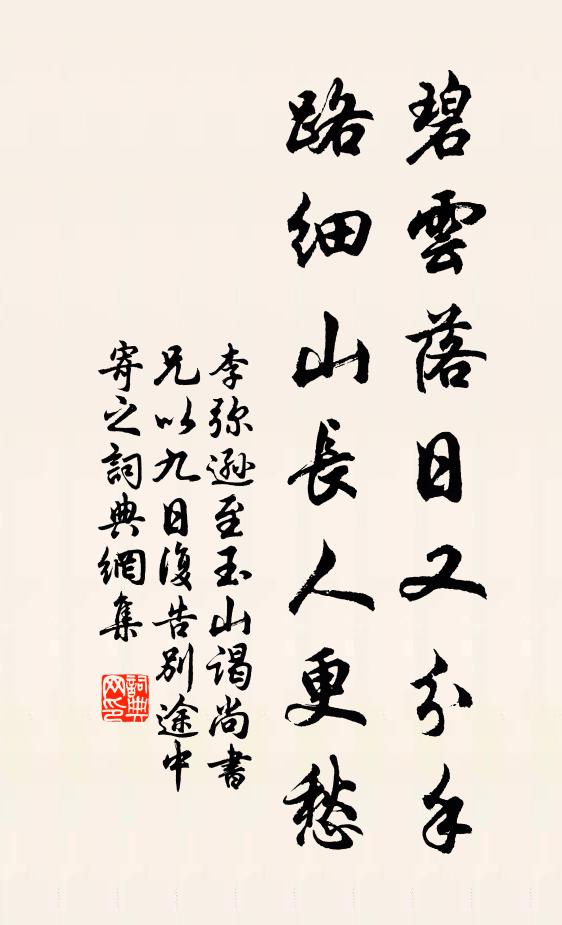 碧雲落日又分手
路細山長人更愁
李弥遜至玉山謁尚書
兄以九日復告別途中
寄之詞典網集
詞典
网印